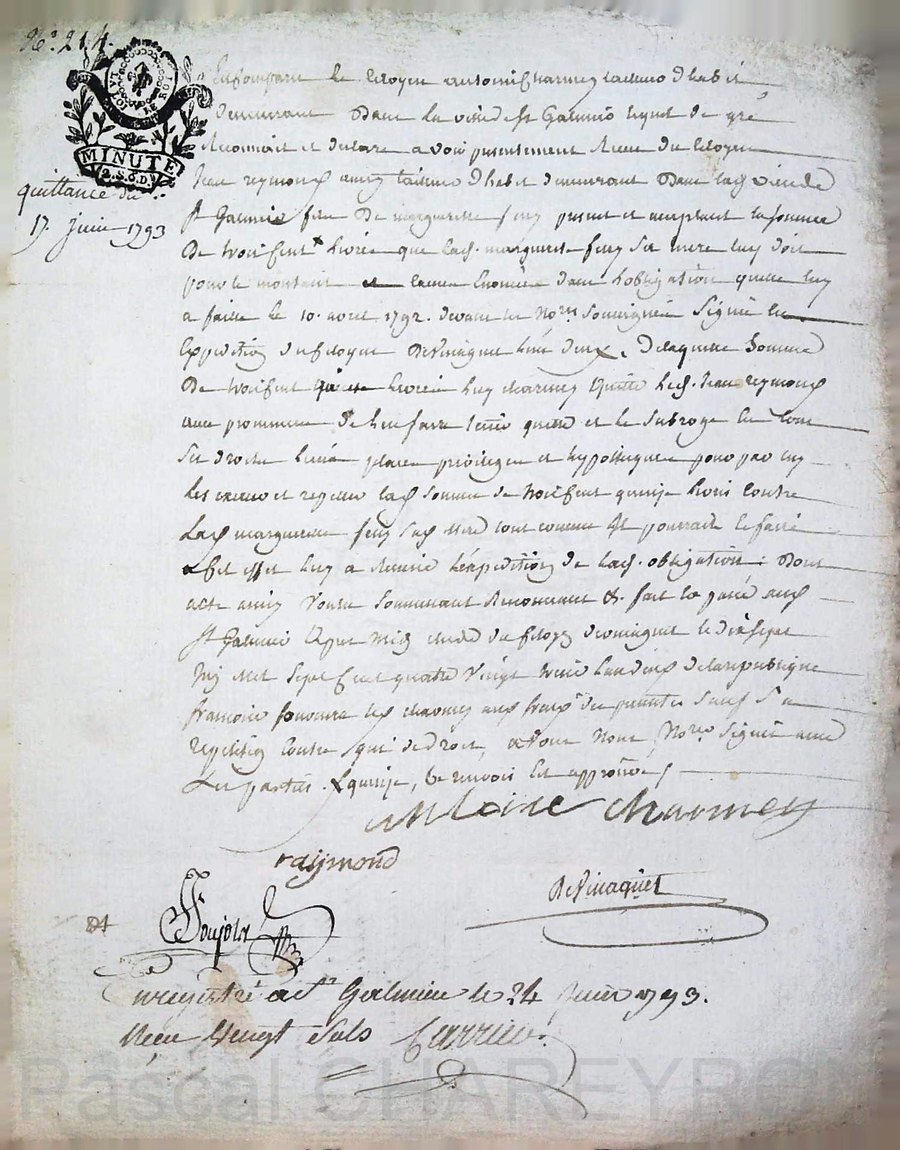 N.° 214.
LA LOI ET LE ROI
MINUTE
2.S.6.D.
quittance du
17. Juin 1793
le Citoyen antoine Charmey tailleur d'habit
demeurant dans la ville de St Galmier lequel de gré
reconnoit et declare avoir presentement Receu du Citoyen
Jean reymond aussy tailleur d'habit demeurant dans lad. ville de
St Galmier fils de marguerite present et acceptant la somme
De trois Cent livres que lad. marguerite sa mere luy doit
pour le montant dans l'obligation quelle luy
a faitte le 10. avril 1792. devant les No.res Soussignés Signé
Expedition du Citoyen Devinaquet l'un d'eux, de laquelle Somme
De trois Cent livres led. charmey quitte led. Jean reymond
avec promesse de l'en faire tenir quitte et le Subroge en tous
Ses droits lieux places privileges et hypotheques pour par luy
les exercer et repeter lad. Somme de trois Cent quinze livres Contre
Lad. marguerite sa mere tout comme il pourroit le faire
a Cet effet luy a Remis l'expedition de lad. obligation. Dont
acte ainsy Voulu Soumettant Renonceant &. fait et passé aud.
St Galmier apres midy etude du Citoyen devinaquet le dix sept
Juin mil Sept Cent quatre Vingt treize l'an deux de la republique
francoise led. charmey aux fraix des presentes Sauf Sa
repetition Contre qui de Droit, et Nous No.res Signé avec
Les parties. quinze, le renvoi Est approuvé
antoine charmey
raymond
Devinaquet
Enregistré a St Galmier le 24 Juin 1793.
Reçu Vingt Sols
Pascal CHAREYRON